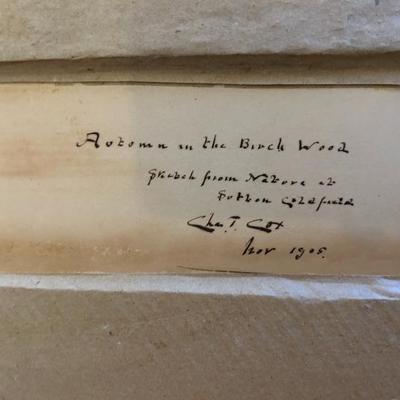 Autumn in the Birch Wood
Sketch from Nature at
Sutton Coldfield
Chas. T. Cox
Nov 1905.